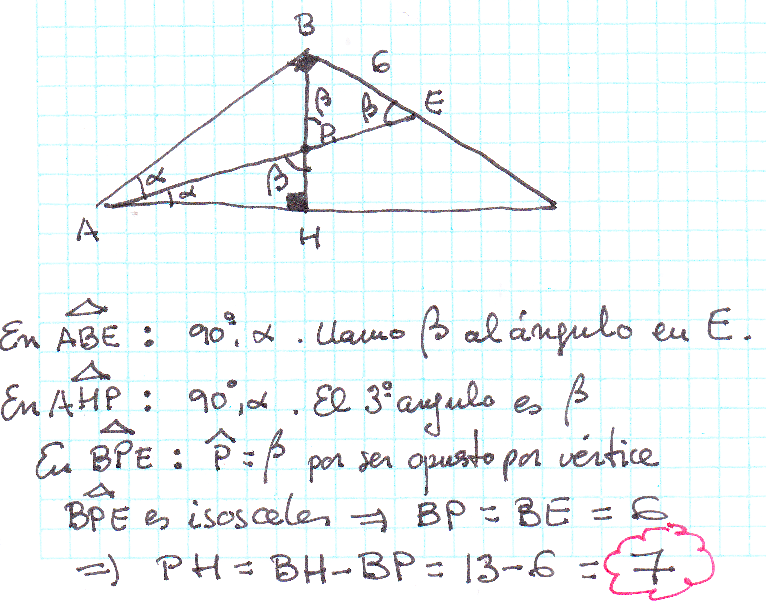 B
6
β
β
E
P
α
α
β
A
H
En ABE : 90°, α . Llamo β al ángulo en E.
En AHP : 90°, α . El 3º angulo es β
En BPE : P̂ = β por ser opuesto por vértice
BPE es isosceles ⇒ BP = BE = 6
⇒ PH = BH - BP = 13 - 6 = 7